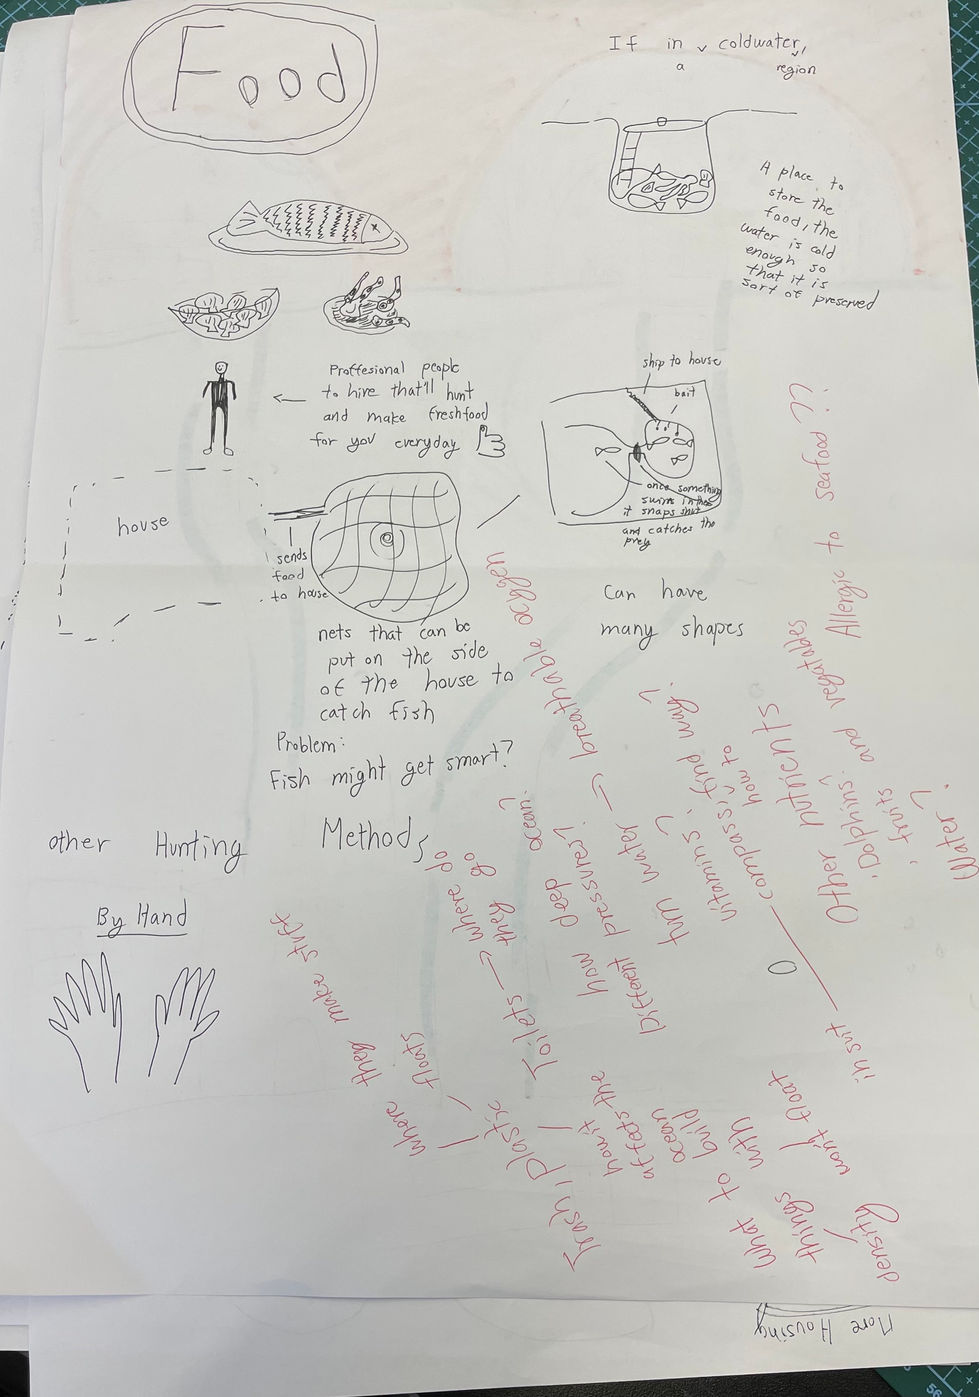 Food
If in a coldwater region,
A place to
store the
food, the
water is cold
enough so
that it is
sort of preserved
Proffesional people
to hire that'll hunt
and make freshfood
for you everyday
ship to house
bait
once something
swims in there
it snaps shut
and catches the
prey
house
sends
food
to house
can have
many shapes
nets that can be
put on the side
of the house to
catch fish
Problem:
Fish might get smart?
other Hunting Methods
By Hand
where they make stuff
floats
Trash, plastic
how it
affects the
ocean
Toilets → where do
they go
how deep ocean?
Different pressures?
turn water → breathable oxygen
vitamins?
compass, find way?
how to
in suit
Other nutrients
Dolphins?
fruits and vegatables
Water?
Allergic to seafood??
What to build
things with
density
won't float
More Housing
56